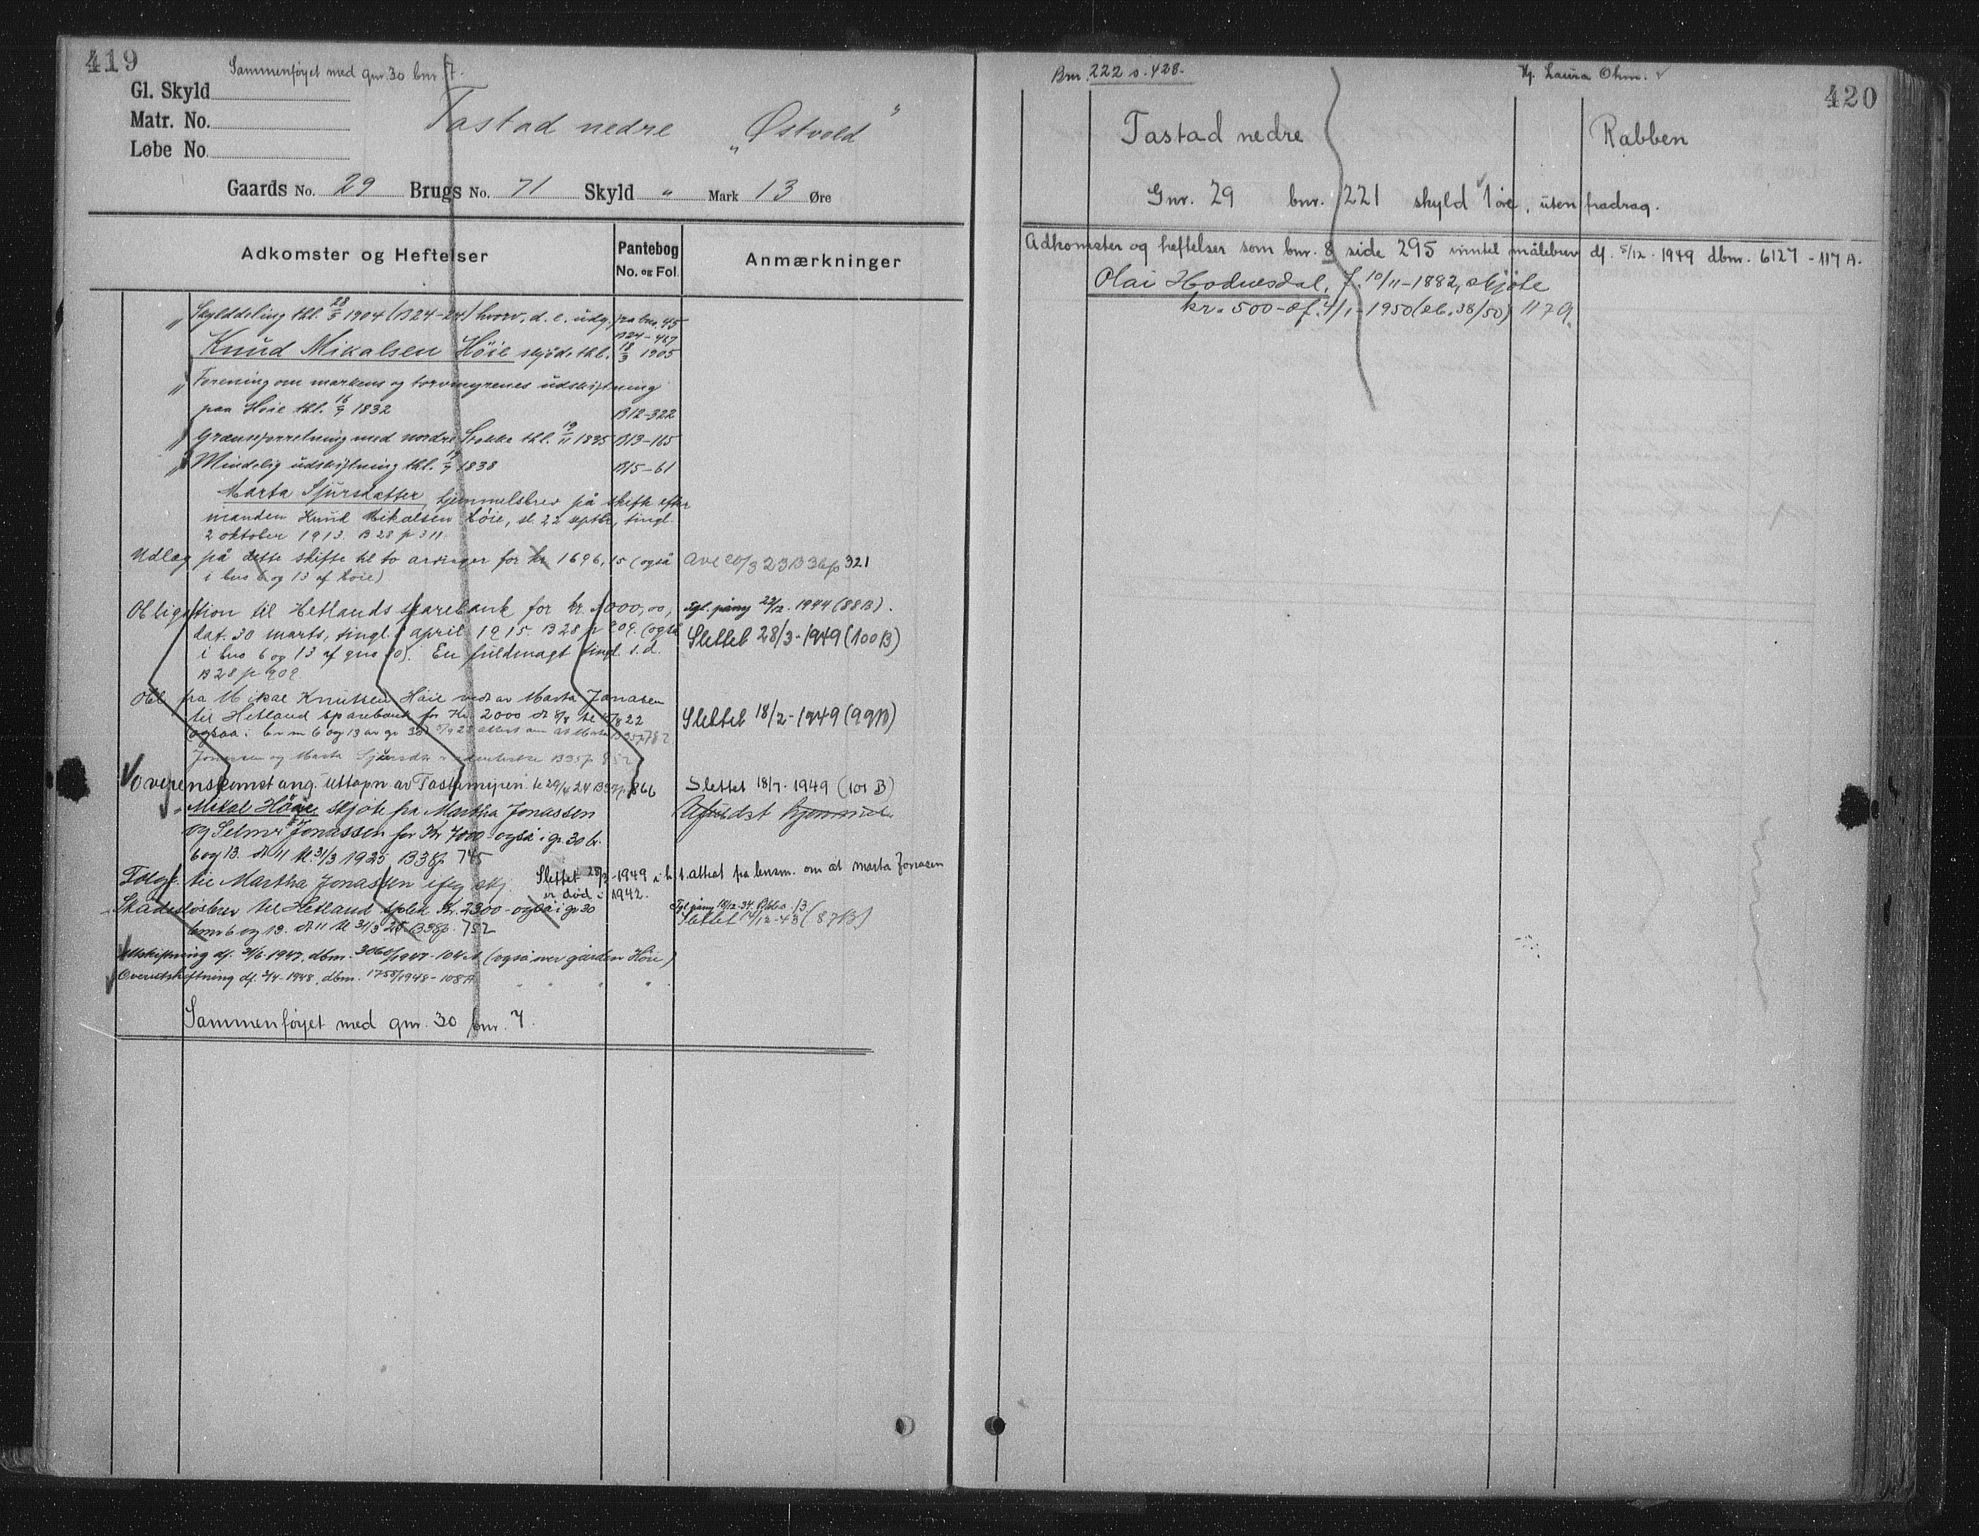 419
Sammenføyet med gnr. 30 bnr. 7.
Gl. Skyld
Matr. No.
Løbe No.
Tastad nedre „Østvold"
Gaards No. 29 Brugs No. 71 Skyld „ Mark 13 Øre
Adkomster og Heftelser
Pantebog No. og Fol.
Anmærkninger
„ Skylddeling thl. 28/5 1904 (B24-24) hvorv. d. e. udg. fra bno. 45
Knud Mikalsen Høie skjöde thl. 18/3 1905 B24-467
„ Forening om markens og torvmyrenes udskiftning
paa Høie thl. 16/7 1832 B12-322
„ Grænseforretning med nordre Stokke thl. 19/11 1835 B13-165
„ Mindelig udskiftning thl. 17/7 1838 B15-61
Marta Sjursdatter, hjemmelsbrev på skifte efter
manden Knud Mikalsen Høie, sl. 22 septbr, tingl.
2 oktober 1913. B28 p 311.
Udlæg på dette skifte til to arvinger for kr 1696,15 (også
i bno 6 og 13 af Høie)
Avl 20/3 23 B36p 321
Obligation til Hetlands sparebank for kr. 3000,00,
dat. 30 marts, tingl. april 1915. B28 p 909. (også
i bno 6 og 13 af gno 30). En fuldmagt tingl. s.d.
B28 p 909
Tgl. påny 22/12. 1944 (88B).
Slettet 28/3-1949 (100B)
Obl. fra Mikal Knutsen Høie ved av Marta Jonasen
til Hetland sparebank for Kr. 2000
ogsaa i br n 6 og 13 av gr 30
Slettet 18/2-1949 (99B)
Jonassen og Marta
Overenskomst ang. uttapn av Tastamyren tl 29/4 24 B37p 866
Slettet 18/7. 1949 (101 B)
Mikal Høie skjøte fra Martha Jonassen
og Selmer Jonassen for Kr 7000 også i gr 30 br.
6 og 13. dt 11 tl. 31/3 1925 B38p 745
Ufuldst hjemmel
Føderåd til Martha Jonassen iflg skj
Slettet 28/3-1949 i h. t. attest fra lensm. om at Marta Jonasen
er død i 1942.
Skadesløsbrev til Hetland spbk Kr. 2300 - også i gr 30
bnr 6 og 13. dt 11 tl 31/3 25 B38p. 752
Tgl påny 18/12-34.
Slettet 14/12-43 (87B)
Utskiftning df. 21/6-1947, dbnr. 3060/1947-104A (også over gården Høie)
Overutskiftning df. 2/4-1948, dbnr. 1758/1948-108A „ „ „ „
Sammenføyet med gnr. 30 bnr. 7.
420
Bnr. 222 s. 428.
Hj. Laura Ohm. v
Tastad nedre Rabben
Gnr. 29 bnr. 221 skyld 1 øre, uten fradrag.
Adkomster og heftelser som bnr. 8 side 295 inntil målebrev df. 5/12. 1949 dbnr. 6127-117A.
Olai Hodnesdal, f. 10/11-1882, skjøte
kr. 500- df. 4/1-1950 (db. 38/50) 117A.